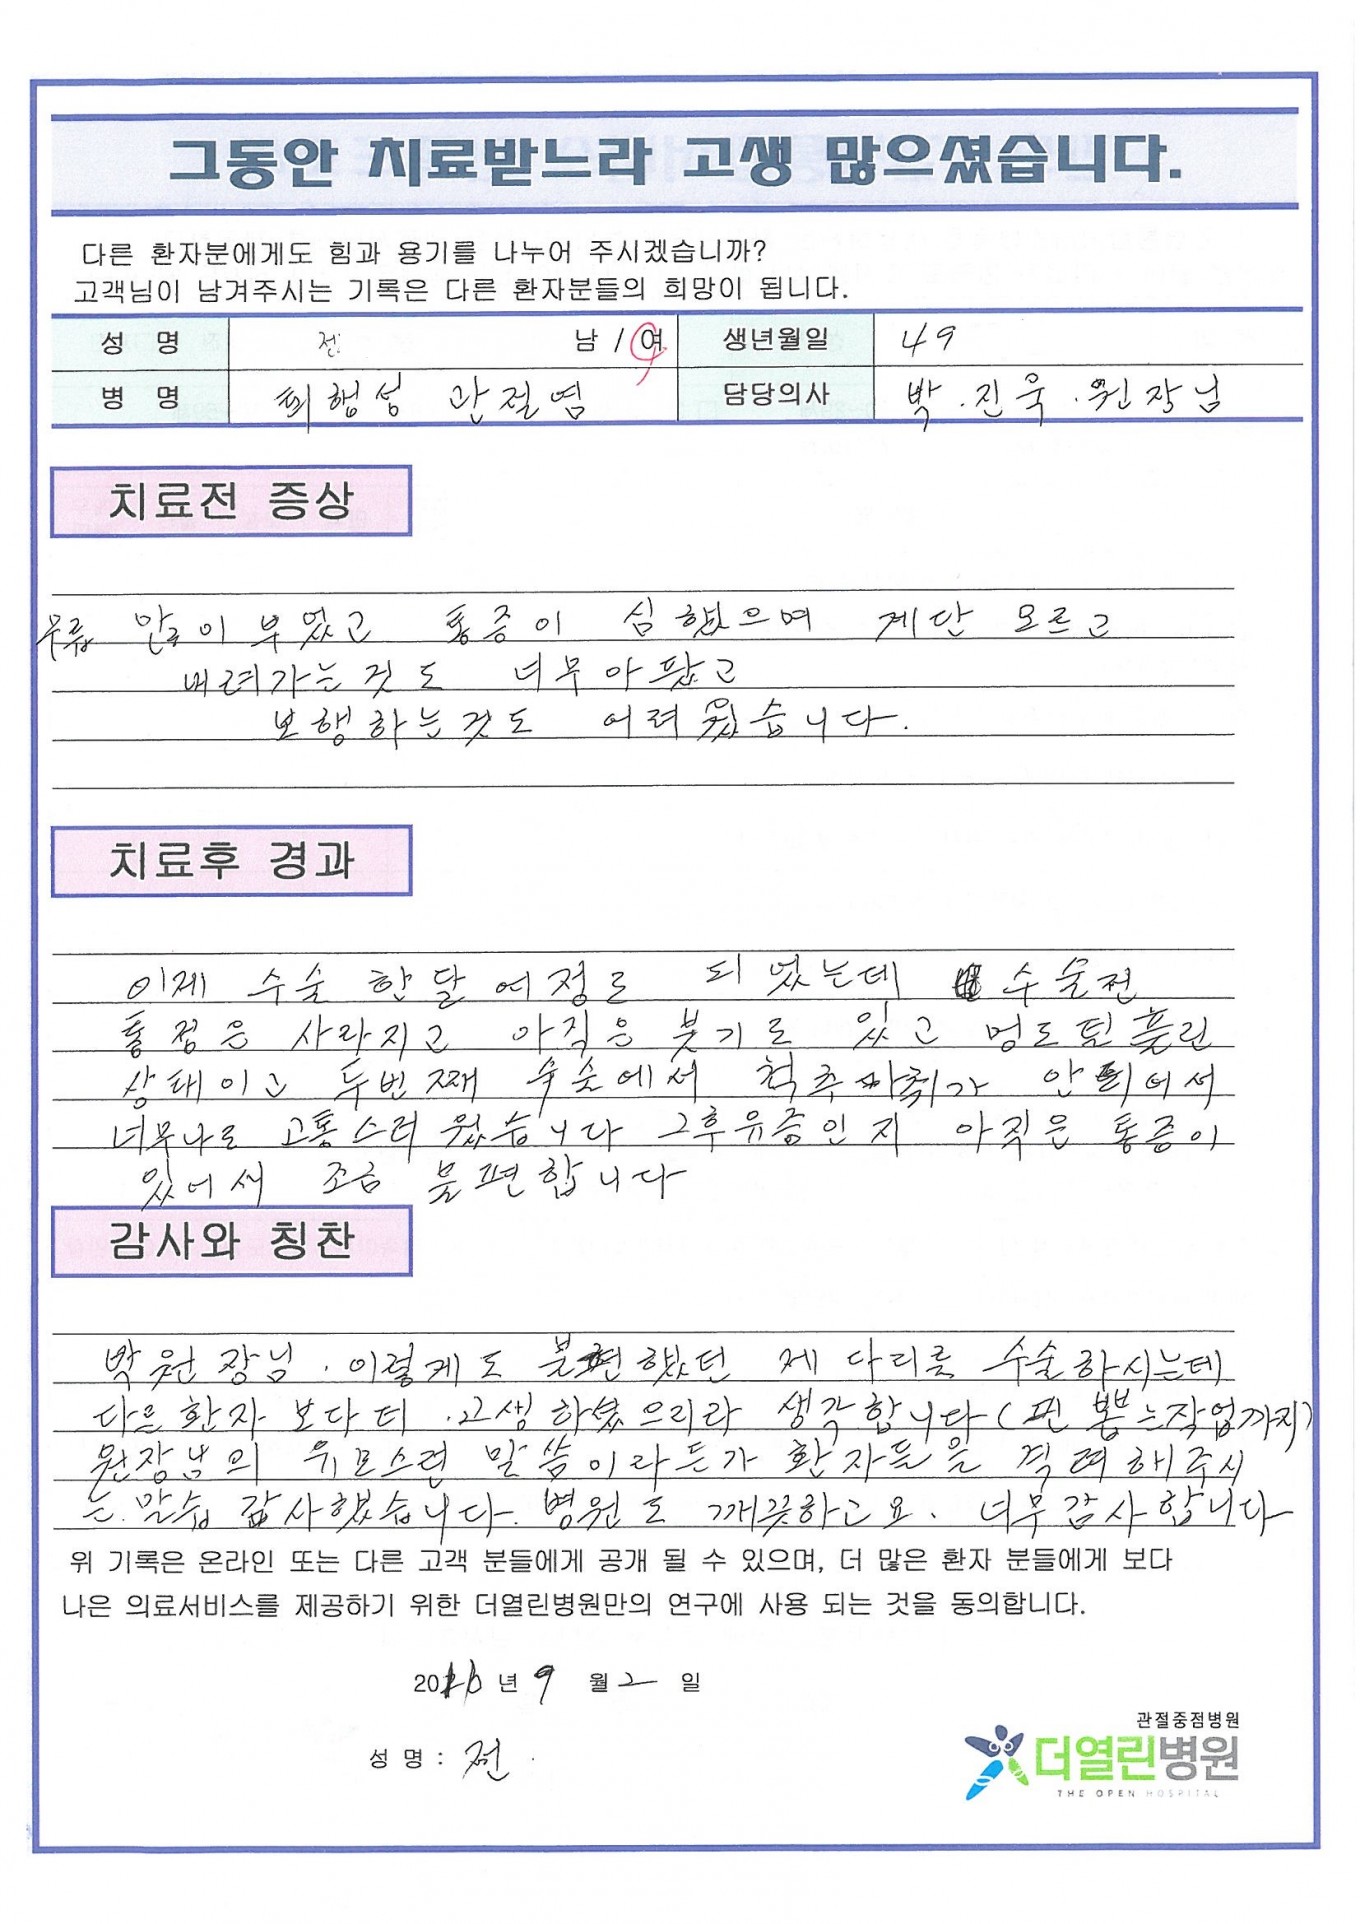 그동안 치료받느라 고생 많으셨습니다.
다른 환자분에게도 힘과 용기를 나누어 주시겠습니까?
고객님이 남겨주시는 기록은 다른 환자분들의 희망이 됩니다.
성 명 전 남 / 여 생년월일 49
병 명 퇴행성 관절염 담당의사 박.진욱.원장님
치료전 증상
무릎 많이 부었고 통증이 심했으며 계단 오르고
내려가는것도 너무아팠고
보행하는것도 어려웠습니다.
치료후 경과
이제 수술 한달 여정도 되었는데 수술전
통점은 사라지고 아직은 붓기도 있고 멍도 덜풀린
상태이고 두번째 수술에서 척추마취가 안되어서
너무나도 고통스러웠습니다 그후유증인지 아직은 통증이
있어서 조금 불편합니다
감사와 칭찬
박원장님. 이렇게도 불편했던 제 다리를 수술하시는데
다른환자 보다더 .고생하셨으리라 생각합니다 (핀 뽑는작업까지)
원장님의 유모스런 말씀이라든가 환자들을 격려해주시
는.말씀 감사했습니다. 병원도 깨끗하고요. 너무감사합니다
위 기록은 온라인 또는 다른 고객 분들에게 공개 될 수 있으며, 더 많은 환자 분들에게 보다
나은 의료서비스를 제공하기 위한 더열린병원만의 연구에 사용 되는 것을 동의합니다.
2016 년 9 월 2 일
성 명 : 전.
관절중점병원
더열린병원
THE OPEN HOSPITAL